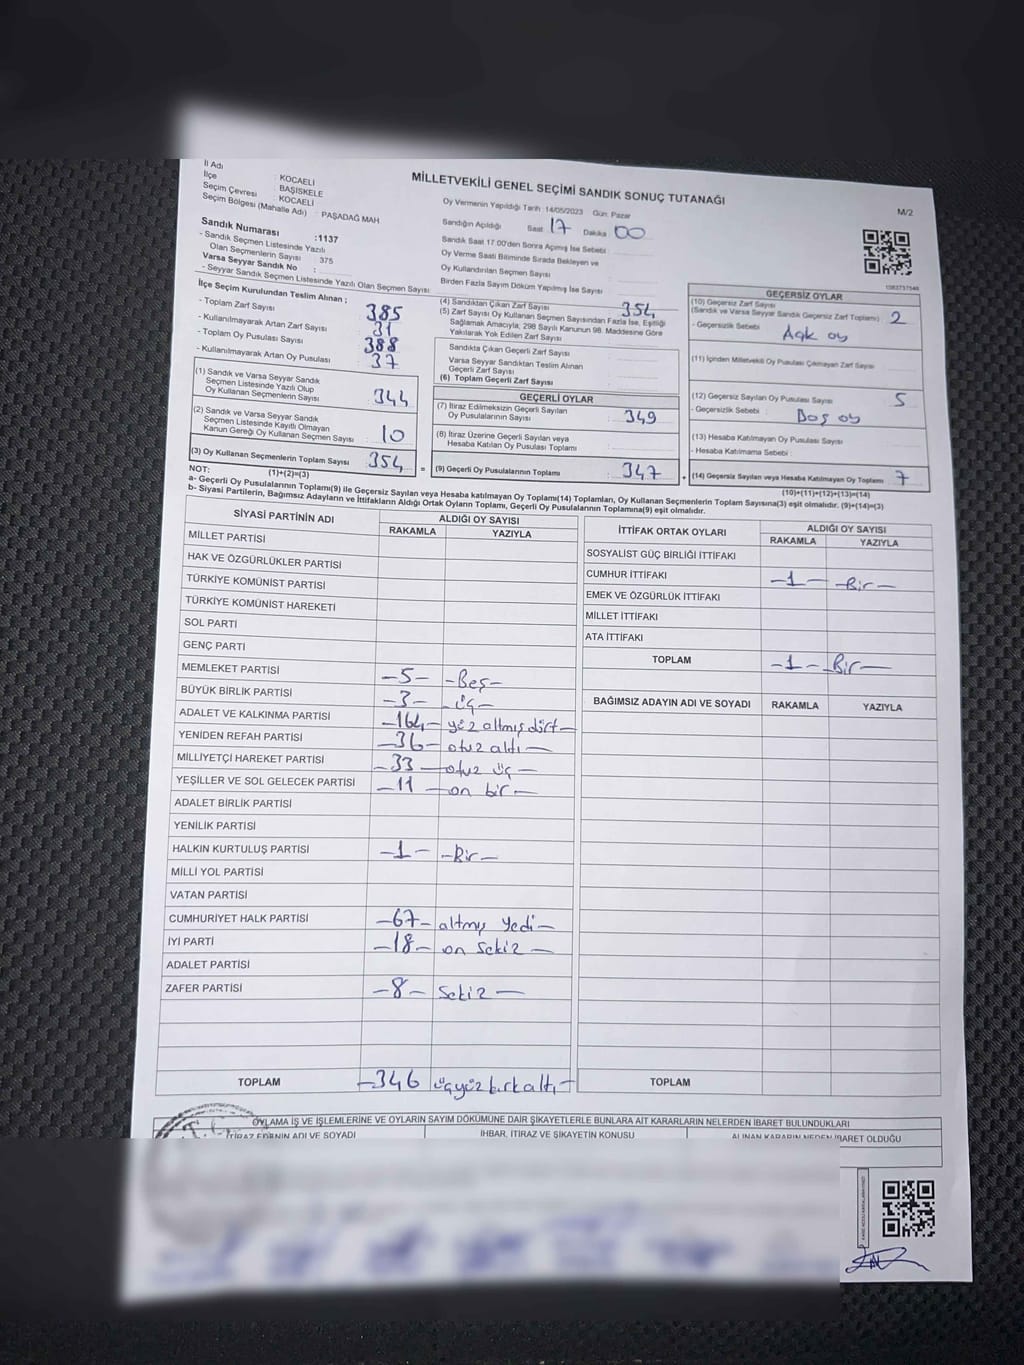 MİLLETVEKİLİ GENEL SEÇİMİ SANDIK SONUÇ TUTANAĞI
M/2
İl Adı : KOCAELİ
İlçe : BAŞİSKELE
Seçim Çevresi : KOCAELİ
Seçim Bölgesi (Mahalle Adı) : PAŞADAĞ MAH
Sandık Numarası :1137
- Sandık Seçmen Listesinde Yazılı
Olan Seçmenlerin Sayısı : 375
Varsa Seyyar Sandık No :
- Seyyar Sandık Seçmen Listesinde Yazılı Olan Seçmen Sayısı:
Oy Vermenin Yapıldığı Tarih :14/05/2023 Gün: Pazar
Sandığın Açıldığı Saat 17 Dakika 00
Sandık Saat 17.00'den Sonra Açılmış İse Sebebi :
Oy Verme Saati Bitiminde Sırada Bekleyen ve
Oy Kullandırılan Seçmen Sayısı
Birden Fazla Sayım Döküm Yapılmış İse Sayısı :
İlçe Seçim Kurulundan Teslim Alınan ;
- Toplam Zarf Sayısı : 385
- Kullanılmayarak Artan Zarf Sayısı : 31
- Toplam Oy Pusulası Sayısı : 388
- Kullanılmayarak Artan Oy Pusulası : 37
(1) Sandık ve Varsa Seyyar Sandık
Seçmen Listesinde Yazılı Olup
Oy Kullanan Seçmenlerin Sayısı : 344
(2) Sandık ve Varsa Seyyar Sandık
Seçmen Listesinde Kayıtlı Olmayan
Kanun Gereği Oy Kullanan Seçmen Sayısı : 10
(3) Oy Kullanan Seçmenlerin Toplam Sayısı : 354
(1)+(2)=(3)
(4) Sandıktan Çıkan Zarf Sayısı : 354
(5) Zarf Sayısı Oy Kullanan Seçmen Sayısından Fazla İse, Eşitliği
Sağlamak Amacıyla; 298 Sayılı Kanunun 98. Maddesine Göre
Yakılarak Yok Edilen Zarf Sayısı :
Sandıkta Çıkan Geçerli Zarf Sayısı :
Varsa Seyyar Sandıktan Teslim Alınan
Geçerli Zarf Sayısı :
(6) Toplam Geçerli Zarf Sayısı :
GEÇERLİ OYLAR
(7) İtiraz Edilmeksizin Geçerli Sayılan
Oy Pusulalarının Sayısı : 349
(8) İtiraz Üzerine Geçerli Sayılan veya
Hesaba Katılan Oy Pusulası Toplamı :
= (9) Geçerli Oy Pusulalarının Toplamı : 347
GEÇERSİZ OYLAR
(10) Geçersiz Zarf Sayısı
(Sandık ve Varsa Seyyar Sandık Geçersiz Zarf Toplamı) : 2
- Geçersizlik Sebebi : Açık oy
(11) İçinden Milletvekili Oy Pusulası Çıkmayan Zarf Sayısı:
(12) Geçersiz Sayılan Oy Pusulası Sayısı : 5
- Geçersizlik Sebebi : Boş oy
(13) Hesaba Katılmayan Oy Pusulası Sayısı :
- Hesaba Katılmama Sebebi :
(14) Geçersiz Sayılan veya Hesaba Katılmayan Oy Toplamı : 7
(10)+(11)+(12)+(13)=(14)
NOT:
a- Geçerli Oy Pusulalarının Toplamı(9) ile Geçersiz Sayılan veya Hesaba katılmayan Oy Toplamı(14) Toplamları, Oy Kullanan Seçmenlerin Toplam Sayısına(3) eşit olmalıdır. (9)+(14)=(3)
b- Siyasi Partilerin, Bağımsız Adayların ve İttifakların Aldığı Ortak Oyların Toplamı, Geçerli Oy Pusulalarının Toplamına(9) eşit olmalıdır.
SİYASİ PARTİNİN ADI ALDIĞI OY SAYISI
RAKAMLA YAZIYLA
MİLLET PARTİSİ
HAK VE ÖZGÜRLÜKLER PARTİSİ
TÜRKİYE KOMÜNİST PARTİSİ
TÜRKİYE KOMÜNİST HAREKETİ
SOL PARTİ
GENÇ PARTİ
MEMLEKET PARTİSİ -5- -Beş-
BÜYÜK BİRLİK PARTİSİ -3- -üç-
ADALET VE KALKINMA PARTİSİ -164- yüz altmış dört-
YENİDEN REFAH PARTİSİ -36- otuz altı -
MİLLİYETÇİ HAREKET PARTİSİ -33- otuz üç -
YEŞİLLER VE SOL GELECEK PARTİSİ -11- on bir -
ADALET BİRLİK PARTİSİ
YENİLİK PARTİSİ
HALKIN KURTULUŞ PARTİSİ -1- -Bir-
MİLLİ YOL PARTİSİ
VATAN PARTİSİ
CUMHURİYET HALK PARTİSİ -67- altmış yedi -
İYİ PARTİ -18- on sekiz -
ADALET PARTİSİ
ZAFER PARTİSİ -8- sekiz -
TOPLAM -346 üçyüz kırkaltı -
İTTİFAK ORTAK OYLARI ALDIĞI OY SAYISI
RAKAMLA YAZIYLA
SOSYALİST GÜÇ BİRLİĞİ İTTİFAKI
CUMHUR İTTİFAKI -1- -Bir-
EMEK VE ÖZGÜRLÜK İTTİFAKI
MİLLET İTTİFAKI
ATA İTTİFAKI
TOPLAM -1- -Bir-
BAĞIMSIZ ADAYIN ADI VE SOYADI RAKAMLA YAZIYLA
TOPLAM
T.C.
OYLAMA İŞ VE İŞLEMLERİNE VE OYLARIN SAYIM DÖKÜMÜNE DAİR ŞİKAYETLERLE BUNLARA AİT KARARLARIN NELERDEN İBARET BULUNDUKLARI
İTİRAZ EDENİN ADI VE SOYADI İHBAR, İTİRAZ VE ŞİKAYETİN KONUSU ALINAN KARARIN NEDEN İBARET OLDUĞU